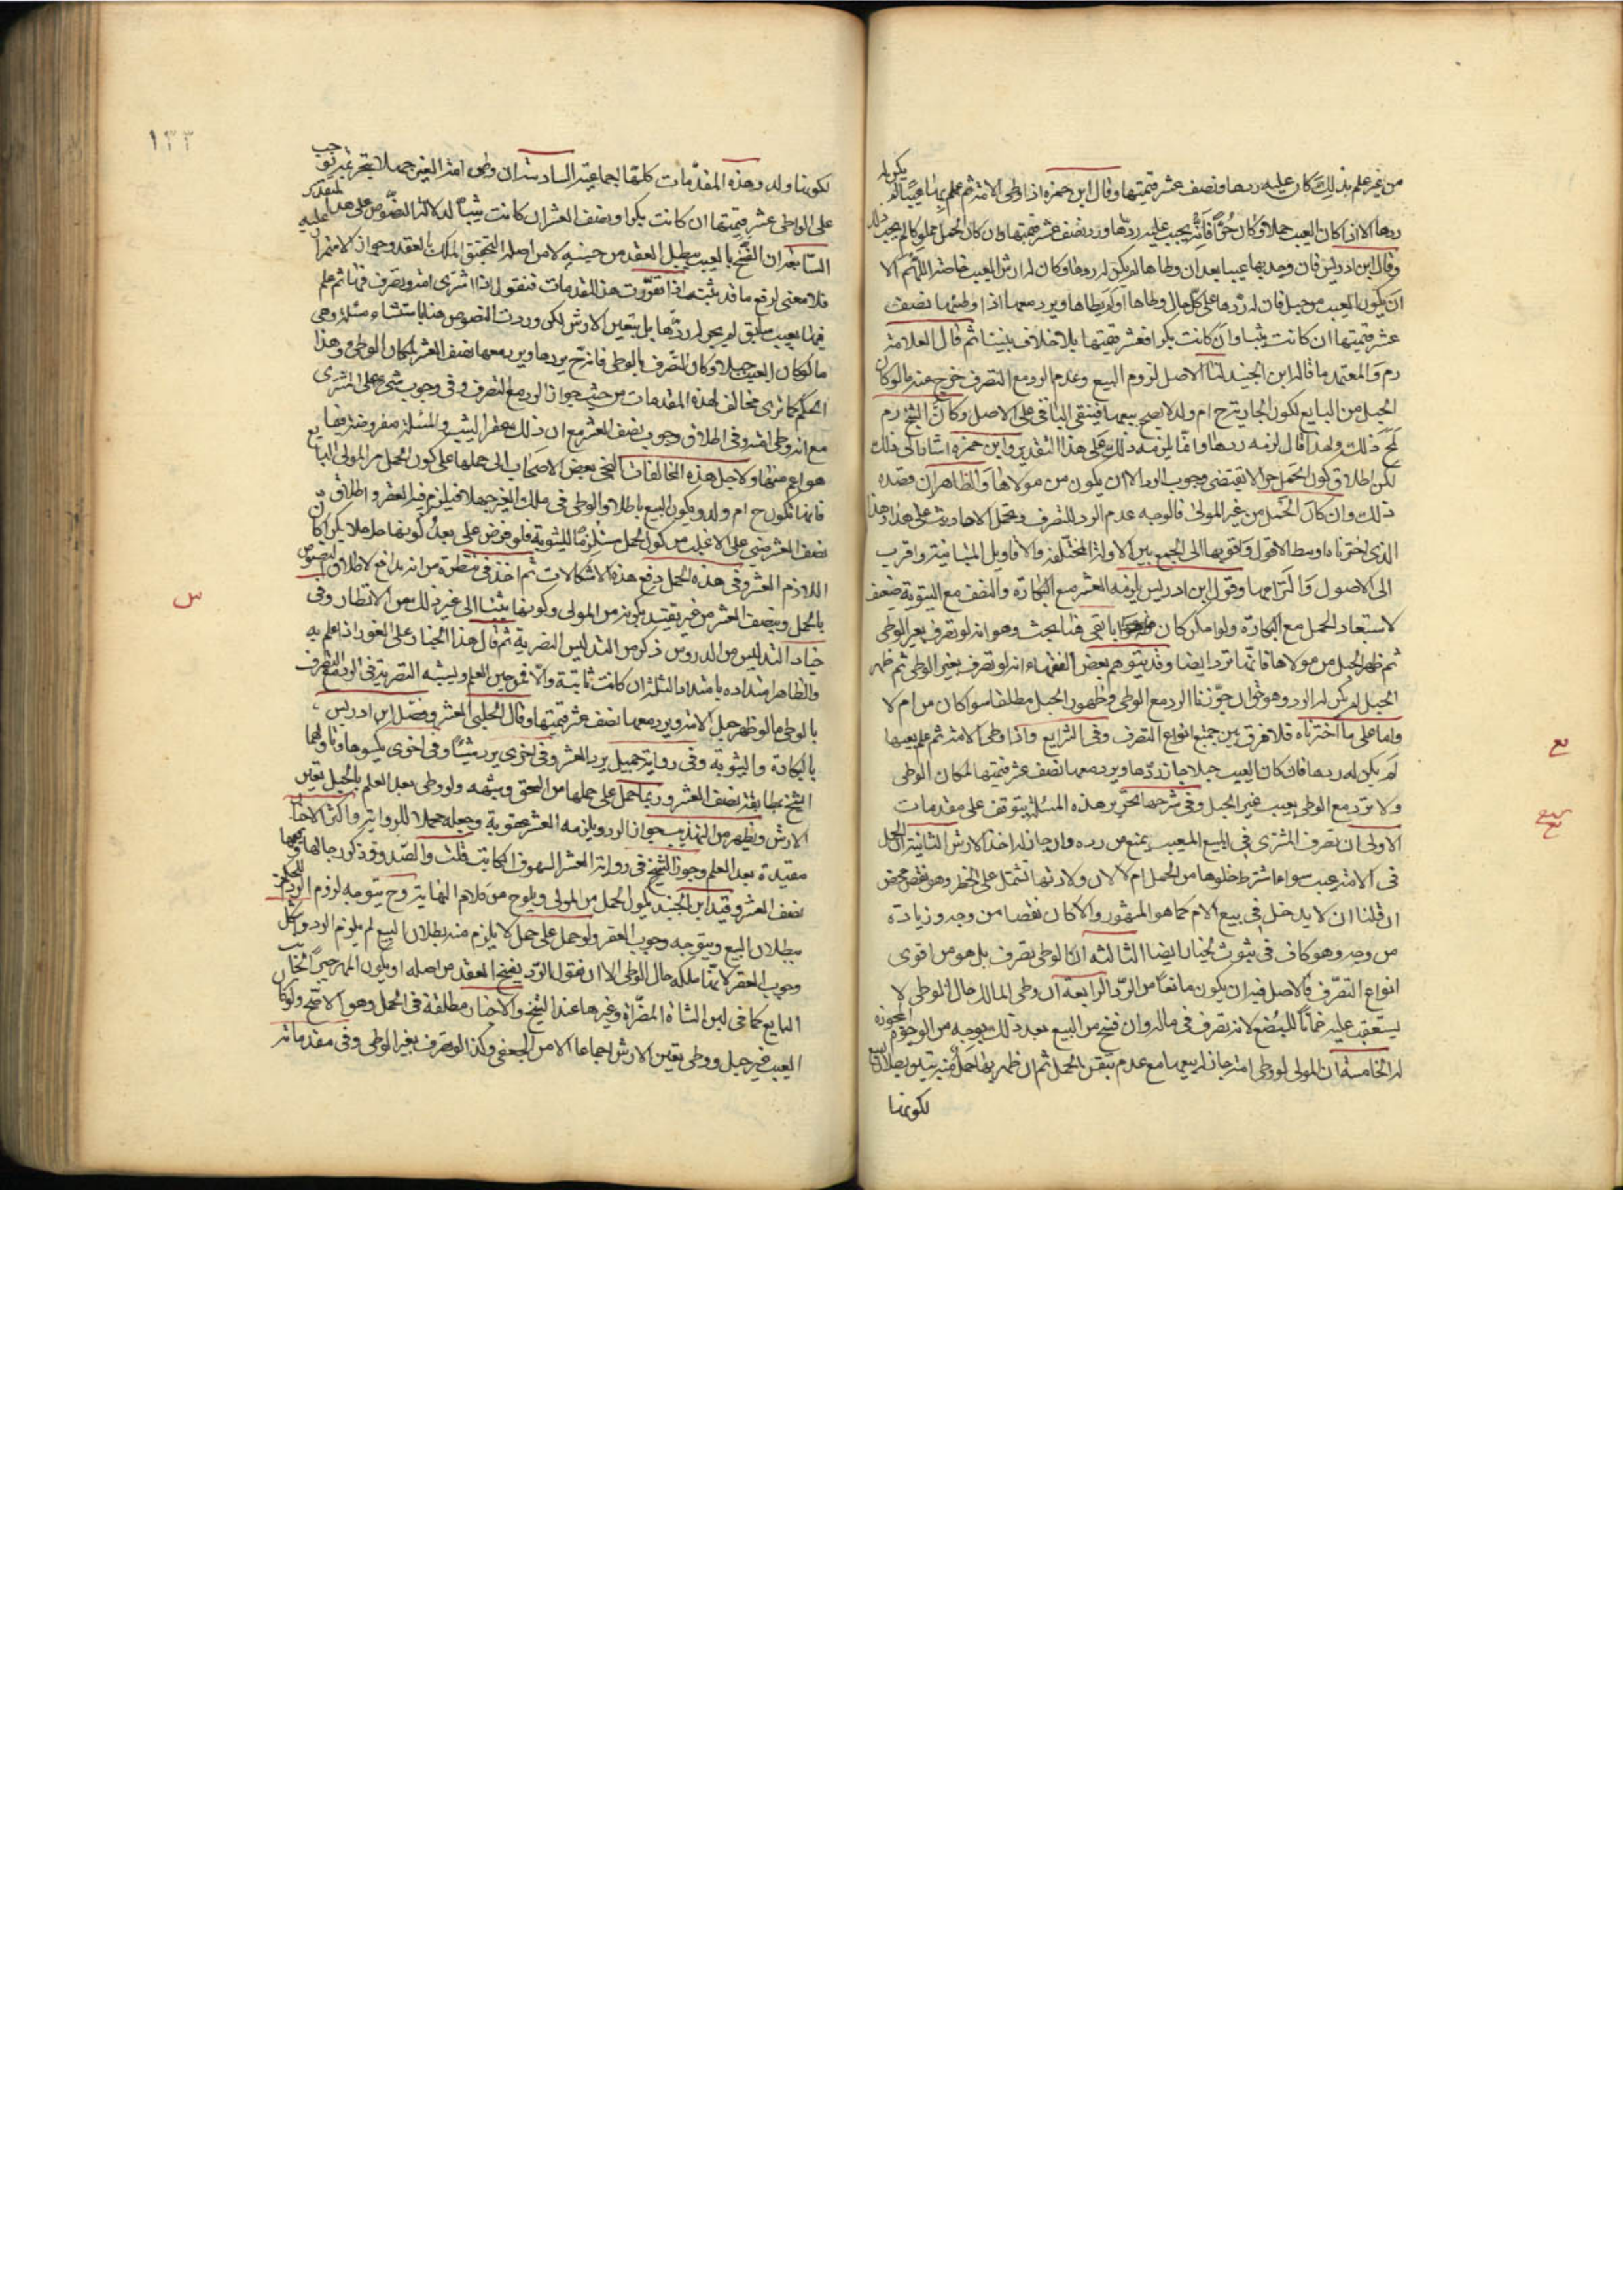 من غير علم بذلك كان عليه ردها ونصف عشر قيمتها وقال ابن حمزه اذا وطى الامة ثم علم بها عيبا لم يكن له
ردها الا اذا كان العيب حملا وكان حرا فانه يجب عليه ردها ورد نصف عشر قيمتها وان كان الحمل مملوكا لم يجب ذلك
وقال ابن ادريس فان وجد بها عيبا بعد ان وطاها لم يكن له ردها وكان له ارش العيب خاصة اللهم الا
ان يكون العيب من حبل فان له ردها على كل حال وطاها او لم يطاها ويرد معها اذا وطئها نصف
عشر قيمتها ان كانت ثيبا وان كانت بكرا فعشر قيمتها بلا خلاف بيننا ثم قال العلامة
ره والمعتمد ما قاله ابن الجنيد لنا الاصل لزوم البيع وعدم الرد مع التصرف خرج عنه ما لو كان
الحبل من البايع لكون الجارية ح ام ولد لا يصح بيعها فيبقى الباقي على الاصل وكان الشيخ ره
لمح ذلك ولهذا قال لزمه ردها وانما يلزمه ذلك على هذا التقدير وابن حمزه اشار الى ذلك
لكن اطلاق كون الحمل حرا لا يقتضى وجوب الرد الا ان يكون من مولاها والظاهر ان قصده
ذلك وان كان الحبل من غير المولى فالوجه عدم الرد للتصرف وتحمل الاحاديث على هذا وهذا
الذي اخترناه اوسط الاقوال واقربها الى الجمع بين الادلة المختلفة والاقاويل المتباينة واقرب
الى الاصول والتزامها وقول ابن ادريس يلزمه العشر مع البكارة والنصف مع الثيوبة ضعيف
لاستبعاد الحمل مع البكارة ولو امكن كان باقى هنا بحث وهو انه لو تصرف بغير الوطى
ثم ظهر الحبل من مولاها فانها ترد ايضا وقد يتوهم بعض الفقهاء انه لو تصرف بغير الوطى ثم ظهر
الحبل لم يكن له الرد وهو حق ان جوزنا الرد مع الوطى وظهور الحبل مطلقا سوا كان من ام لا
واما على ما اخترناه فلا فرق بين جميع انواع التصرف وفى الشرايع واذا وطى الامة ثم علم بعيبها
لم يكن له ردها فان كان العيب حبلا جاز ردها ويرد معها نصف عشر قيمتها لمكان الوطى
ولا ترد مع الوطى بعيب غير الحبل وفى شرحها تحرير هذه المسئلة يتوقف على مقدمات
الاولى ان تصرف المشترى فى المبيع المعيب يمنع من رده وان جاز له اخذ الارش الثانية ان الحمل
فى الامة عيب سواء اشترط خلوها من الحمل ام لا لان ولادتها تشتمل على الخطر وهو نقص محض
ان قلنا ان لا يدخل فى بيع الام كما هو المشهور والا كان نقصا من وجه وزيادة
من وجه وهو كاف فى ثبوت الخيار ايضا الثالثه ان الوطى تصرف بل هو من اقوى
انواع التصرف فالاصل فيه ان يكون مانعا من الرد الرابعة ان وطى المالك حال الوطى لا
يستعقب عليه ضمانا للبضع لانه تصرف فى ماله وان فسخ من البيع بعد ذلك بوجه من الوجوه المجوزة
له الخامسة ان المولى لو وطى امته جاز له بيعها مع عدم تيقن الحمل ثم ان ظهر بها حمل منه تبين بطلان البيع
لكونها
١٣٣
لكونها ام ولد وهذه المقدمات كلها اجماعية السادسة ان وطى امة الغير جهلا بتحريمه يوجب
على الواطى عشر قيمتها ان كانت بكرا ونصف العشر ان كانت ثيبا لدلالة النصوص على هذا التقدير عليه
السابعة ان الفسخ بالعيب يبطل العقد من حينه لا من اصله لتحقق الملك بالعقد وجواز الاستمرار
فلا معنى لرفع ما قد ثبت اذا تقررت هذه المقدمات فنقول اذا اشترى امة وتصرف فيها ثم علم
فيها بعيب سابق لم يجز له ردها بل يتعين الارش لكن وردت النصوص هنا باستثناء مسئلة وهى
ما لو كان العيب حبلا وكان التصرف بالوطى فانه ح يردها ويرد معها نصف العشر لمكان الوطى وهذا
الحكم كما ترى مخالف لهذه المقدمات من حيث جواز الرد مع التصرف وفى وجوب شئ على المشترى
مع انه وطى امته وفى اطلاق وجوب نصف العشر مع ان ذلك عقر الثيب والمسئلة مفروضة فيما
هو اعم منها ولاجل هذه المخالفات التجى بعض الاصحاب الى حملها على كون الحمل من المولى البايع
فانها تكون ح ام ولد ويكون البيع باطلا والوطى فى ملك الغير جهلا فيلزم فيه العقر واطلاق
نصف العشر مبنى على الاغلب من كون الحمل مستلزما للثيوبة فلو فرض على بعد كونها حاملا بكرا كان
اللازم العشر وفى هذا الحمل دفع هذه الاشكالات ثم اخذ فى منظرة من انه مدافع لاطلاق النصوص
بالحمل وبنصف العشر من غير تقييد بكونه من المولى وكونها ثيبا الى غير ذلك من الانظار وفى
خيار التدليس من الدروس ذكر من التدليس التصرية ثم قال هذا الخيار على الفور اذا علم به
والظاهر امتداده بامتداد الثلثة ان كانت ثابتة والا فمن حين العلم ويشبه التصرية فى الرد مع التصرف
بالوطى ما لو ظهر حبل الامة ويرد معها نصف عشر قيمتها وقال الحلبى العشر وفصل ابن ادريس
بالبكارة والثيوبة وفى رواية جميل يرد العشر وفى اخرى يرد شيئا وفى اخرى يكسوها واولها
الشيخ بمطابقة نصف العشر وربما حمل على حملها من المحق وشبهه ولو وطى بعد العلم بالحبل تعين
الارش ويظهر من التهذيب جواز الرد ويلزمه العشر عقوبة وجعله حملا للرواية واكثر الاخبار
مقيدة بعدم العلم وجوز الشيخ فى رواية العشر السهو من الكاتب قلت والصدوق ذكر رجالها وفيها
نصف العشر وقيد ابن الجنيد بكون الحمل من المولى ويلوح من كلام النهاية وح يتوجه لزوم الرد للحكم
ببطلان البيع ويتوجه وجوب العقر ولو حمل على حمل لا يلزم منه بطلان البيع لم يلزم الرد
وجوب العقر لانها ملكه حال الوطى الا ان نقول الرد يفسخ العقد من اصله او يكون المهر جبرا لجانب
البايع كما فى لبن الشاة المصراة وغيرها عند الشيخ والاخبار مطلقة فى الحمل وهو الاصح ولو كان
العيب غير حبل ووطى تعين الارش اجماعا الا من الجعفى وكذا لو تصرف بغير الوطى وفى مقدماته
س